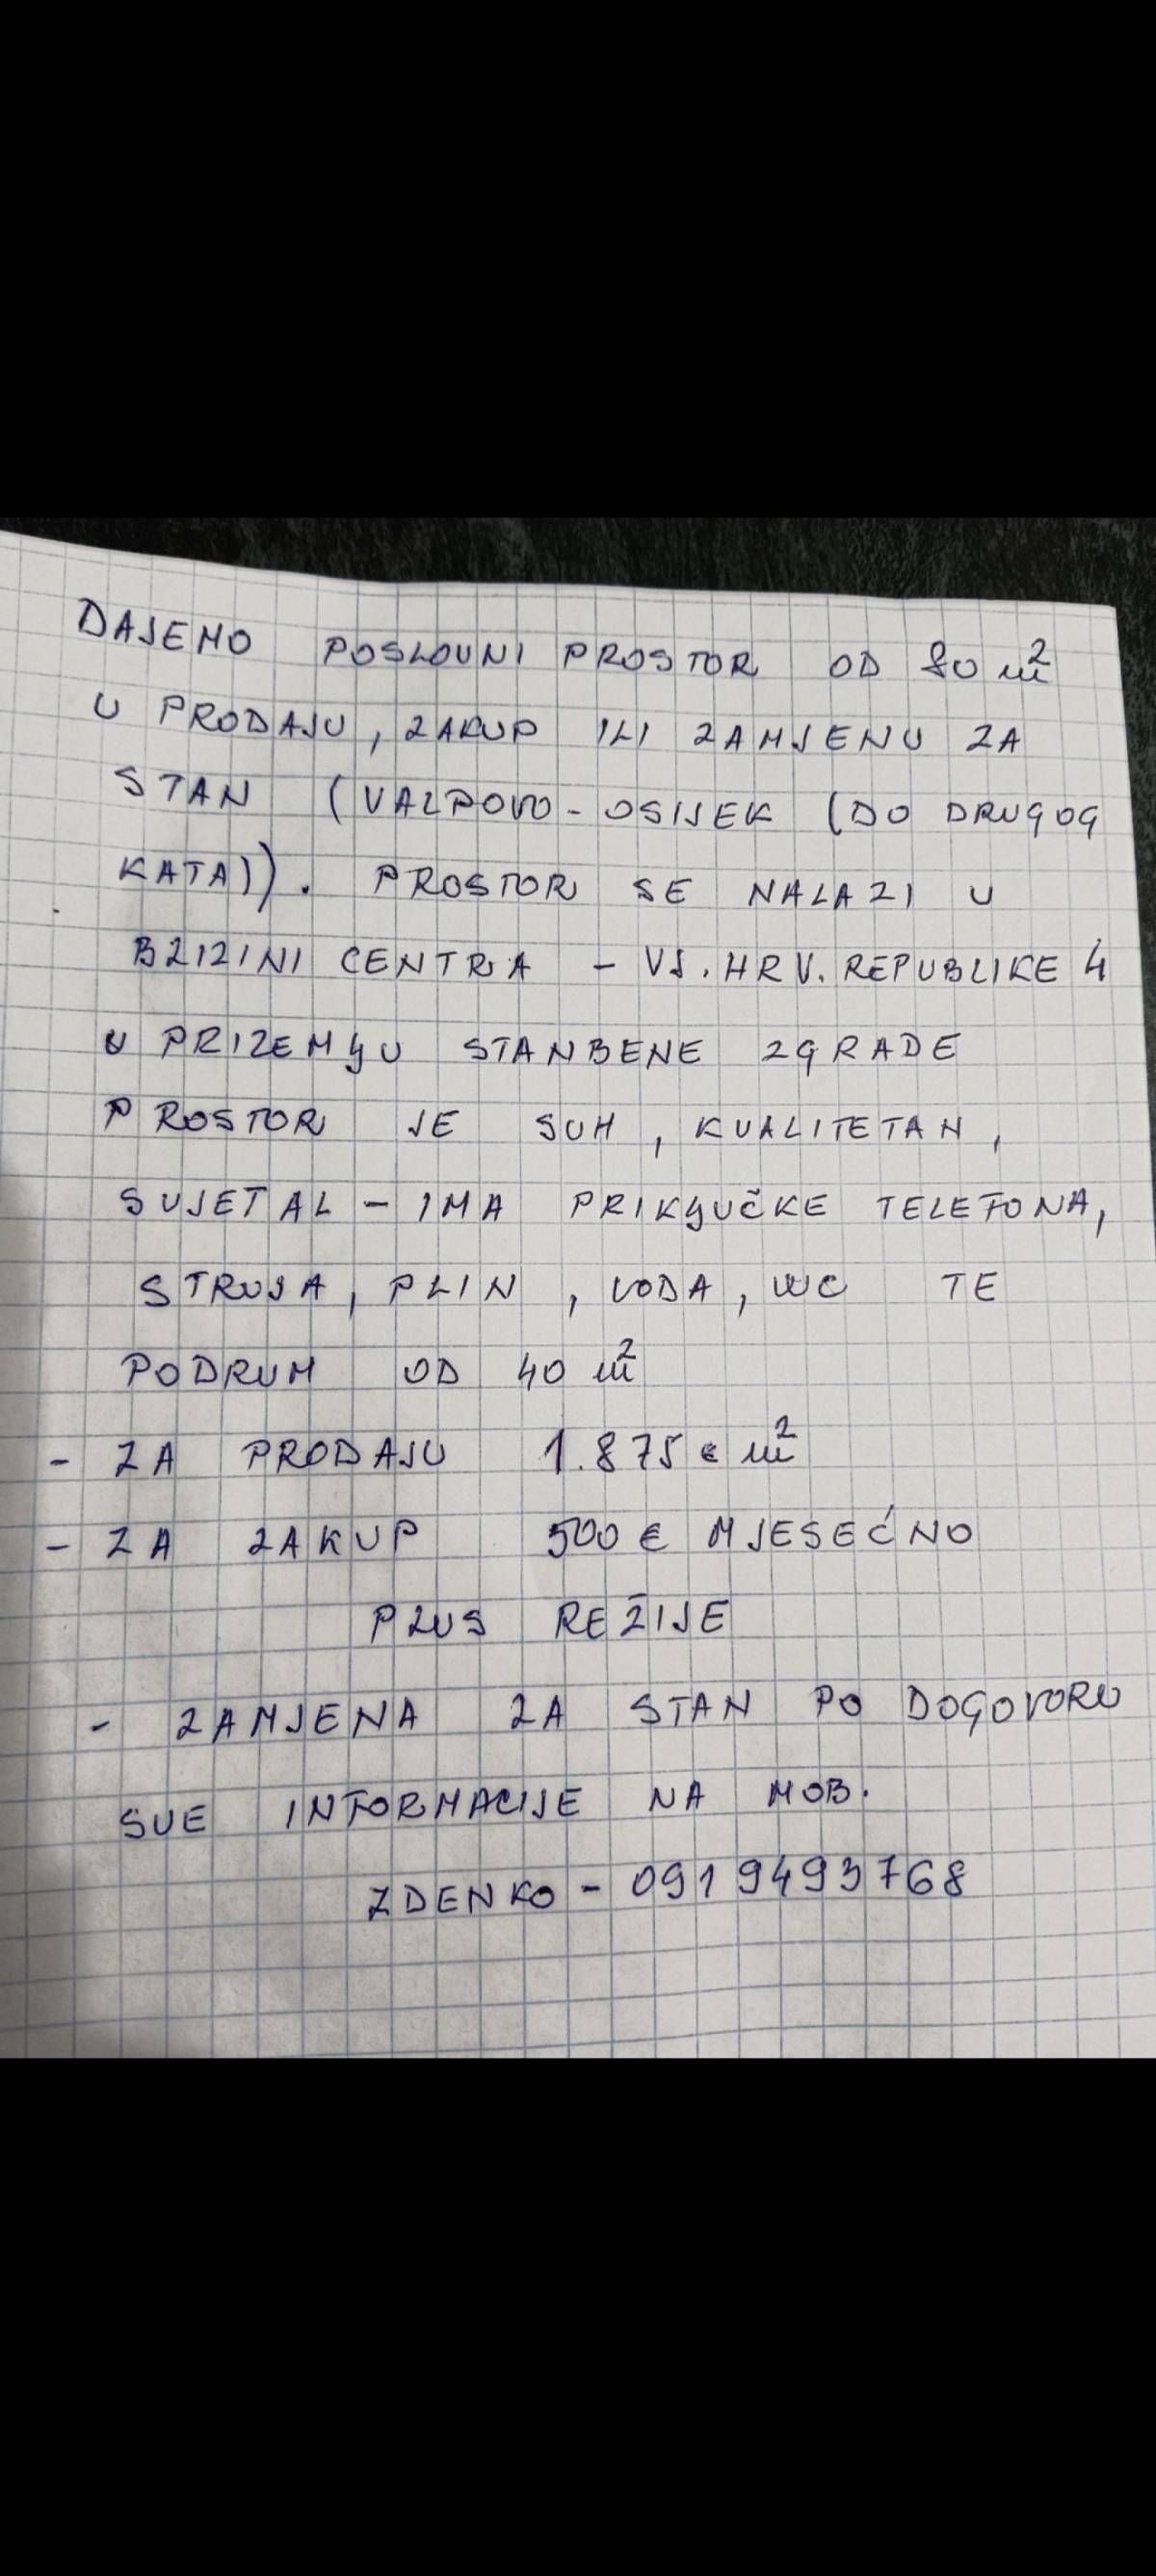 DAJEMO POSLOVNI PROSTOR OD 80 m²
U PRODAJU, ZAKUP ILI ZAMJENU ZA
STAN (VALPOVO - OSIJEK (DO DRUGOG
KATA)). PROSTOR SE NALAZI U
BLIZINI CENTRA - VJ. HRV. REPUBLIKE 4
U PRIZEMLJU STANBENE ZGRADE
PROSTOR JE SUH, KVALITETAN,
SVJETAL - IMA PRIKLJUČKE TELEFONA,
STRUJA, PLIN, VODA, WC TE
PODRUM OD 40 m²
- ZA PRODAJU 1.875 € m²
- ZA ZAKUP 500 € MJESEĆNO
PLUS REŽIJE
- ZAMJENA ZA STAN PO DOGOVORU
SVE INFORMACIJE NA MOB.
ZDENKO - 0919493768